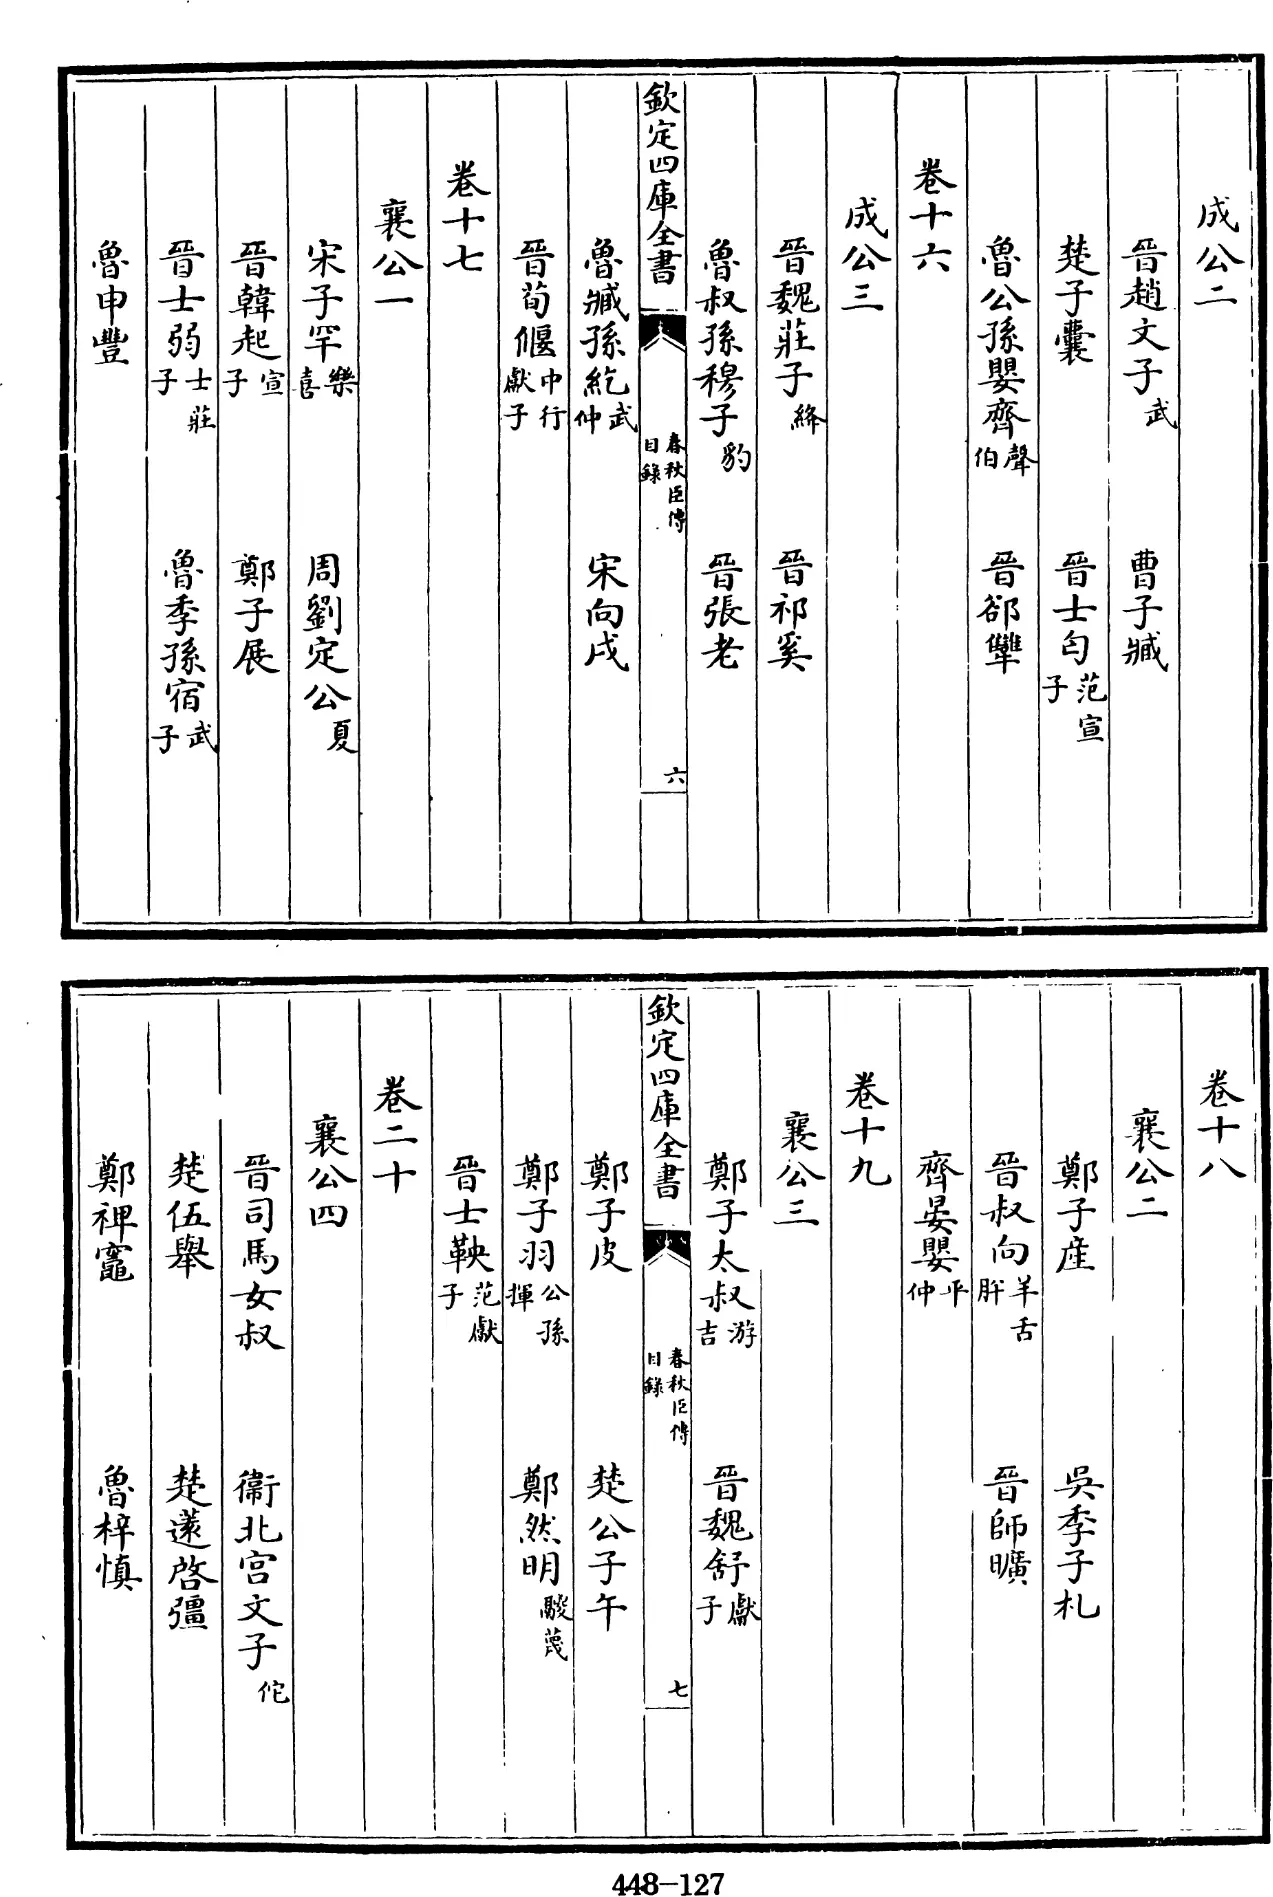 成公二
晉趙文子武 曹子臧
楚子囊 晉士匄范宣子
魯公孫嬰齊聲伯 晉郤犫
卷十六
成公三
晉魏莊子絳 晉祁奚
魯叔孫穆子豹 晉張老
欽定四庫全書 春秋臣傳目錄 六
魯臧孫紇武仲 宋向戌
晉荀偃中行獻子
卷十七
襄公一
宋子罕樂喜 周劉定公夏
晉韓起宣子 鄭子展
晉士弱士莊子 魯季孫宿武子
魯申豐
卷十八
襄公二
鄭子産 吳季子札
晉叔向羊舌肸 晉師曠
齊晏嬰平仲
卷十九
襄公三
鄭子太叔游吉 晉魏舒獻子
欽定四庫全書 春秋臣傳目錄 七
鄭子皮 楚公子午
鄭子羽公孫揮 鄭然明鬷蔑
晉士鞅范獻子
卷二十
襄公四
晉司馬女叔 衞北宮文子佗
楚伍舉 楚薳啓彊
鄭裨竈 魯梓慎
448-127